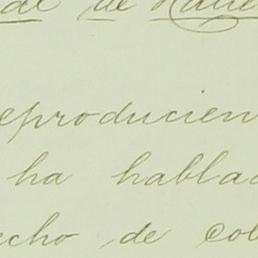 de
eproducien
ha hablad
echo de cob